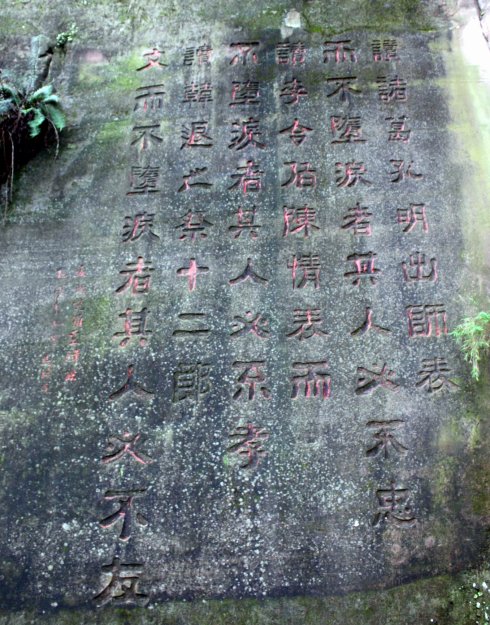 讀諸葛孔明出師表
而不墮淚者其人必不忠
讀李令伯陳情表而
不墮淚者其人必不孝
讀韓退之祭十二郎
文而不墮淚者其人必不友